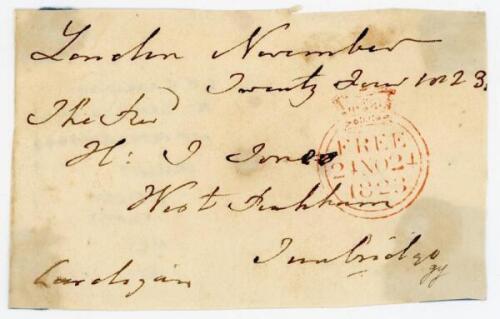 London November
Twenty Four 1823.
The Revd
H: J Jones
West Peckham
Tunbridge
Cardigan
FREE
24 NO 24
1823